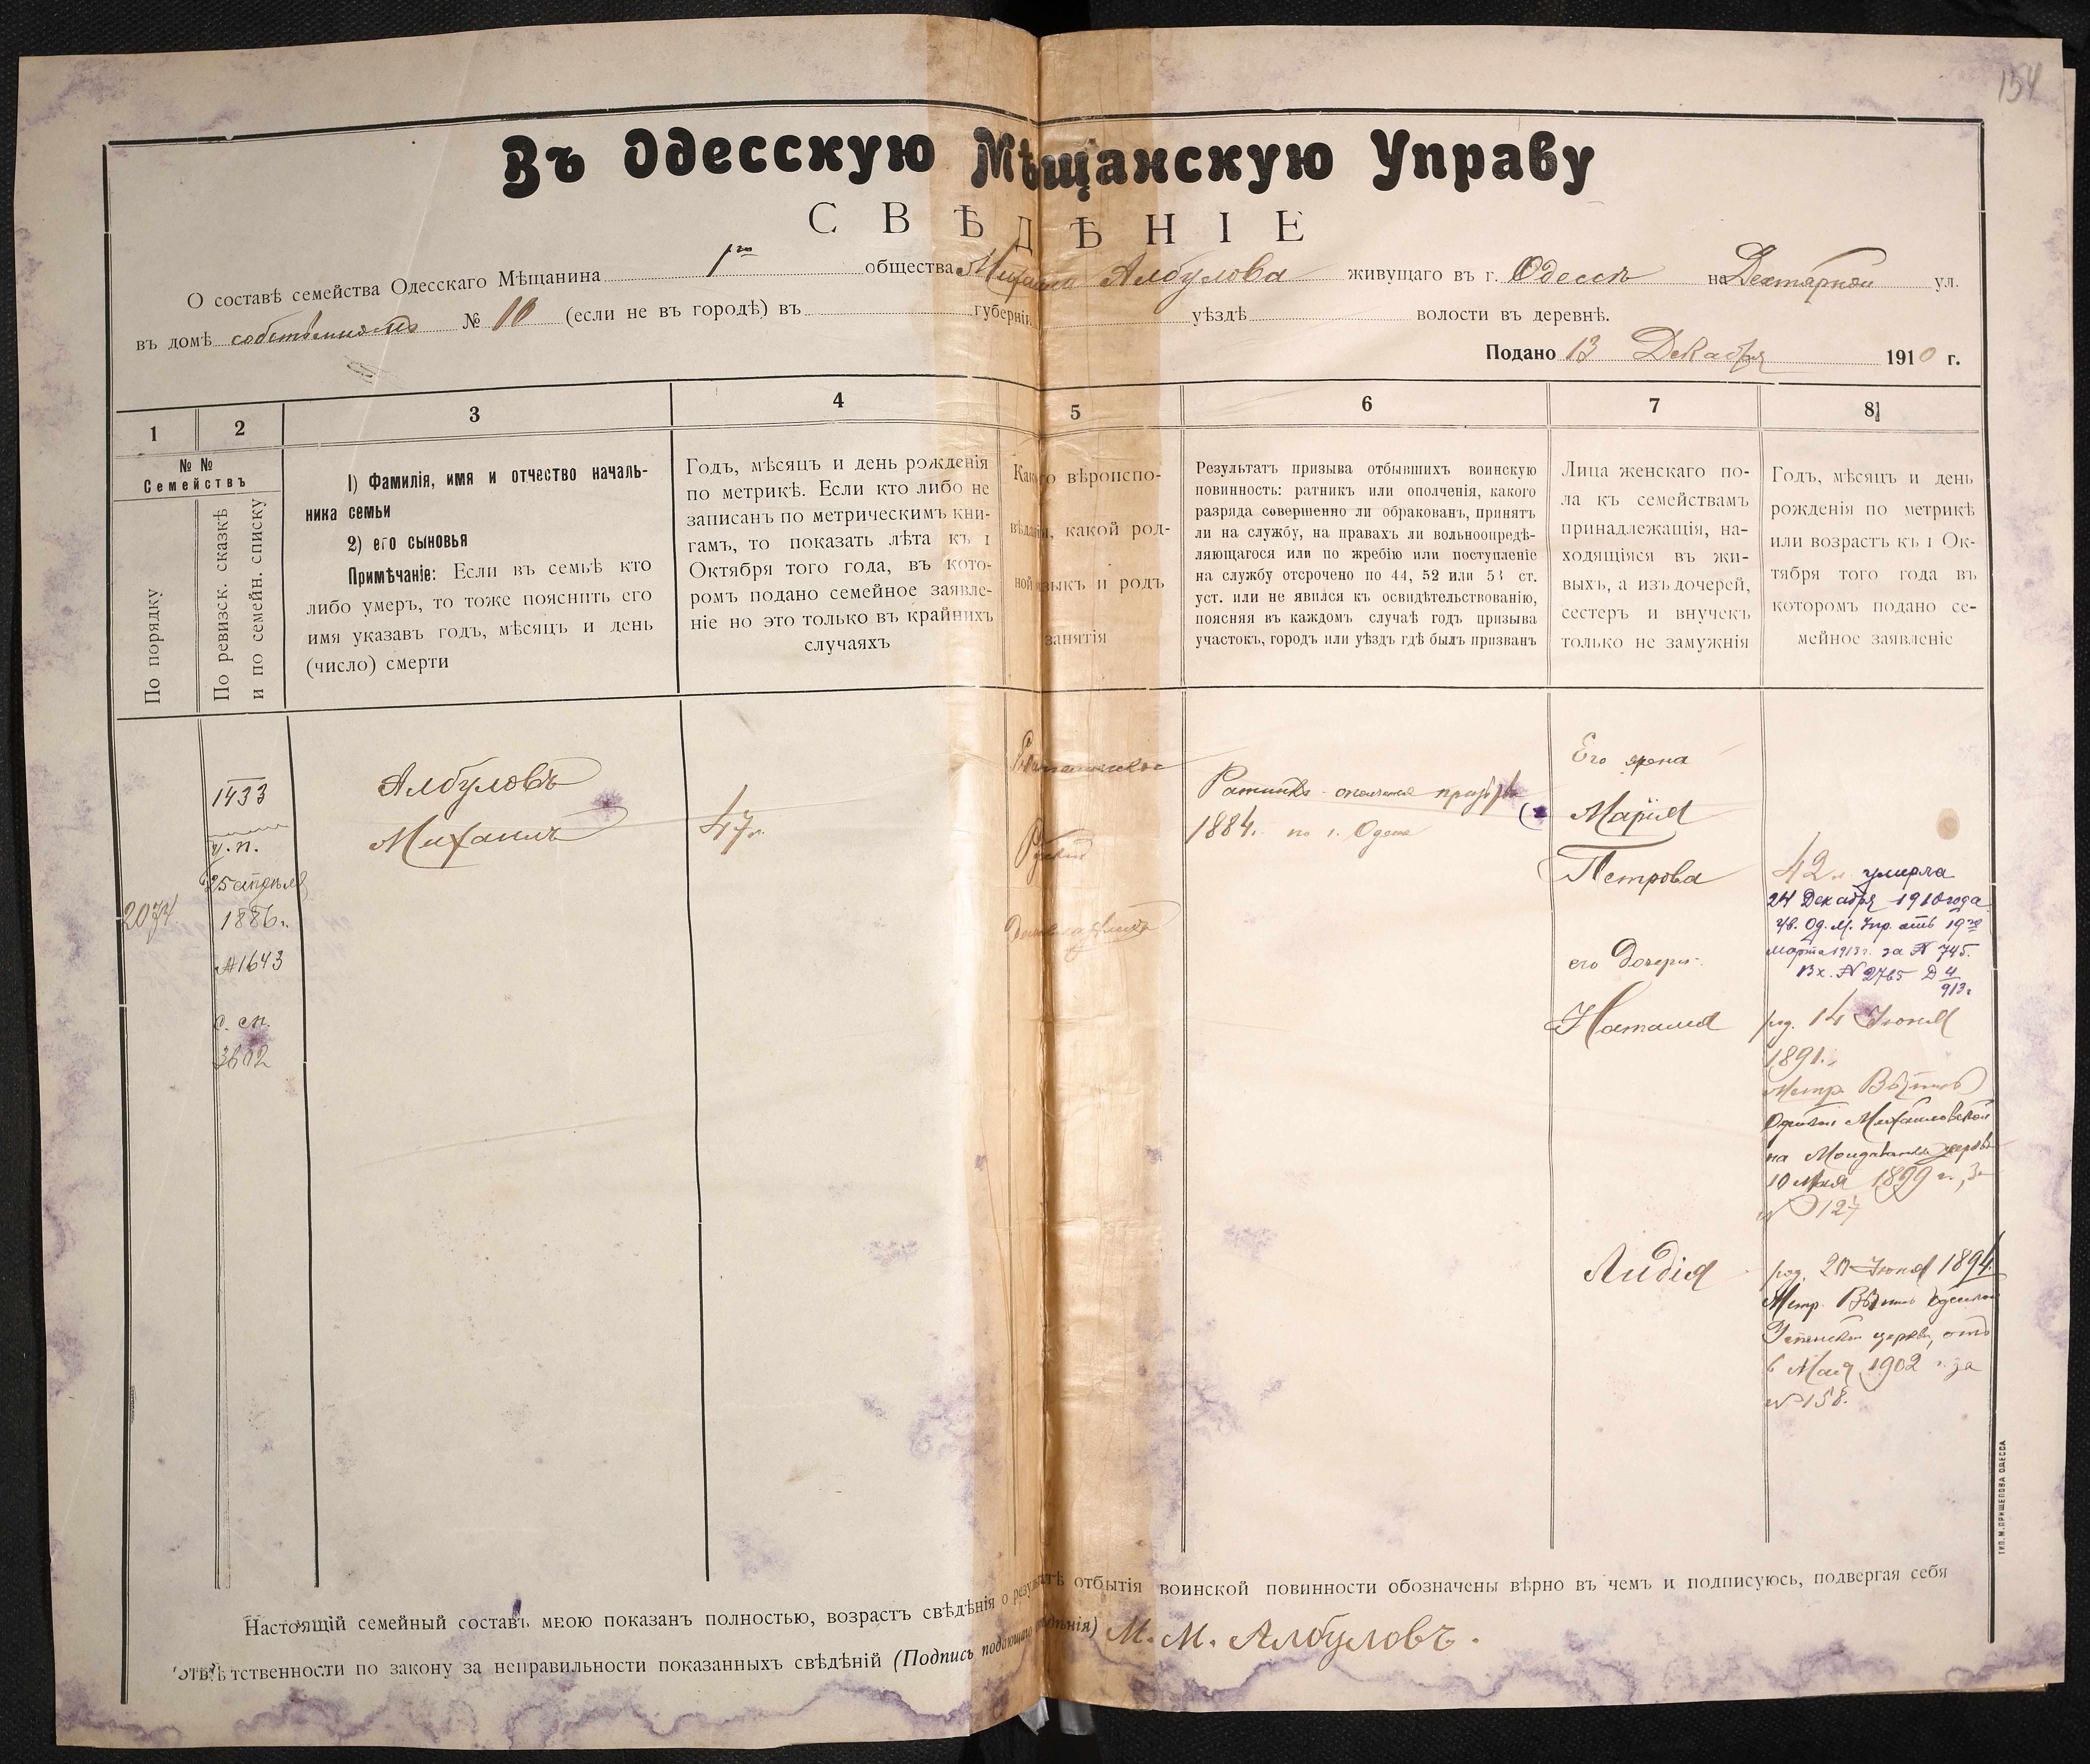 154
Въ Одесскую Мѣщанскую Управу
СВѢДѢНІЕ
О составѣ семейства Одесскаго Мѣщанина 1го общества Михаила Албулова живущаго въ г. Одессѣ на Дехтярной ул.
въ домѣ собственномъ № 10 (если не въ городѣ) въ губерніи уѣздѣ волости въ деревнѣ.
Подано 13 Декабря 1910 г.
1 2 3 4 5 6 7 8
№ №
Семействъ
По порядку
По ревизск. сказкѣ
и по семейн. списку
1) Фамилія, имя и отчество началь-
ника семьи
2) его сыновья
Примѣчаніе: Если въ семьѣ кто
либо умеръ, то тоже пояснить его
имя указавъ годъ, мѣсяцъ и день
(число) смерти
Годъ, мѣсяцъ и день рожденія
по метрикѣ. Если кто либо не
записанъ по метрическимъ кни-
гамъ, то показать лѣта къ 1
Октября того года, въ кото-
ромъ подано семейное заявле-
ніе но это только въ крайнихъ
случаяхъ
Какого вѣроиспо-
вѣданія, какой род-
ной языкъ и родъ
занятія
Результатъ призыва отбывшихъ воинскую
повинность: ратникъ или ополченія, какого
разряда совершенно ли обракованъ, принятъ
ли на службу, на правахъ ли вольноопредѣ-
ляющагося или по жребію или поступленіе
на службу отсрочено по 44, 52 или 53 ст.
уст. или не явился къ освидѣтельствованію,
поясняя въ каждомъ случаѣ годъ призыва
участокъ, городъ или уѣздъ гдѣ былъ призванъ
Лица женскаго по-
ла къ семействамъ
принадлежащія, на-
ходящіяся въ жи-
выхъ, а изъ дочерей,
сестеръ и внучекъ
только не замужнія
Годъ, мѣсяцъ и день
рожденія по метрикѣ
или возрастъ къ 1 Ок-
тября того года въ
которомъ подано се-
мейное заявленіе
2074
1433
у.п.
25 апрѣля
1886 г.
№ 1643
с. сп.
3602
Албуловъ
Михаилъ
47 л.
Русскій
Ратникъ ополченія призыва
1884 г. по г. Одессѣ
Его жена
Марія
Петрова
его дочери:
Наталія
Лидія
42 л. умерла
24 Декабря 1910 года
Ув. Од. М. Упр. отъ 19го
марта 1913 г. за № 745.
Вх. № 2765 Д 4/913 г.
род. 14 Іюня
1891 г.
Метр. Выпись
Одесской Михайловской
на Молдаванкѣ церкви
10 Мая 1899 г., за
№ 127
род. 20 Іюня 1894
Метр. Выпись Одесской
Успенской церкви, отъ
6 Мая 1902 г. за
№ 158.
Настоящій семейный составъ мною показанъ полностью, возрастъ свѣдѣнія о результатѣ отбытія воинской повинности обозначены вѣрно въ чемъ и подписуюсь, подвергая себя
отвѣтственности по закону за неправильности показанныхъ свѣдѣній (Подпись подающаго свѣдѣнія) М. М. Албуловъ.
ТИП. М. ПРИЩЕПОВА ОДЕССА